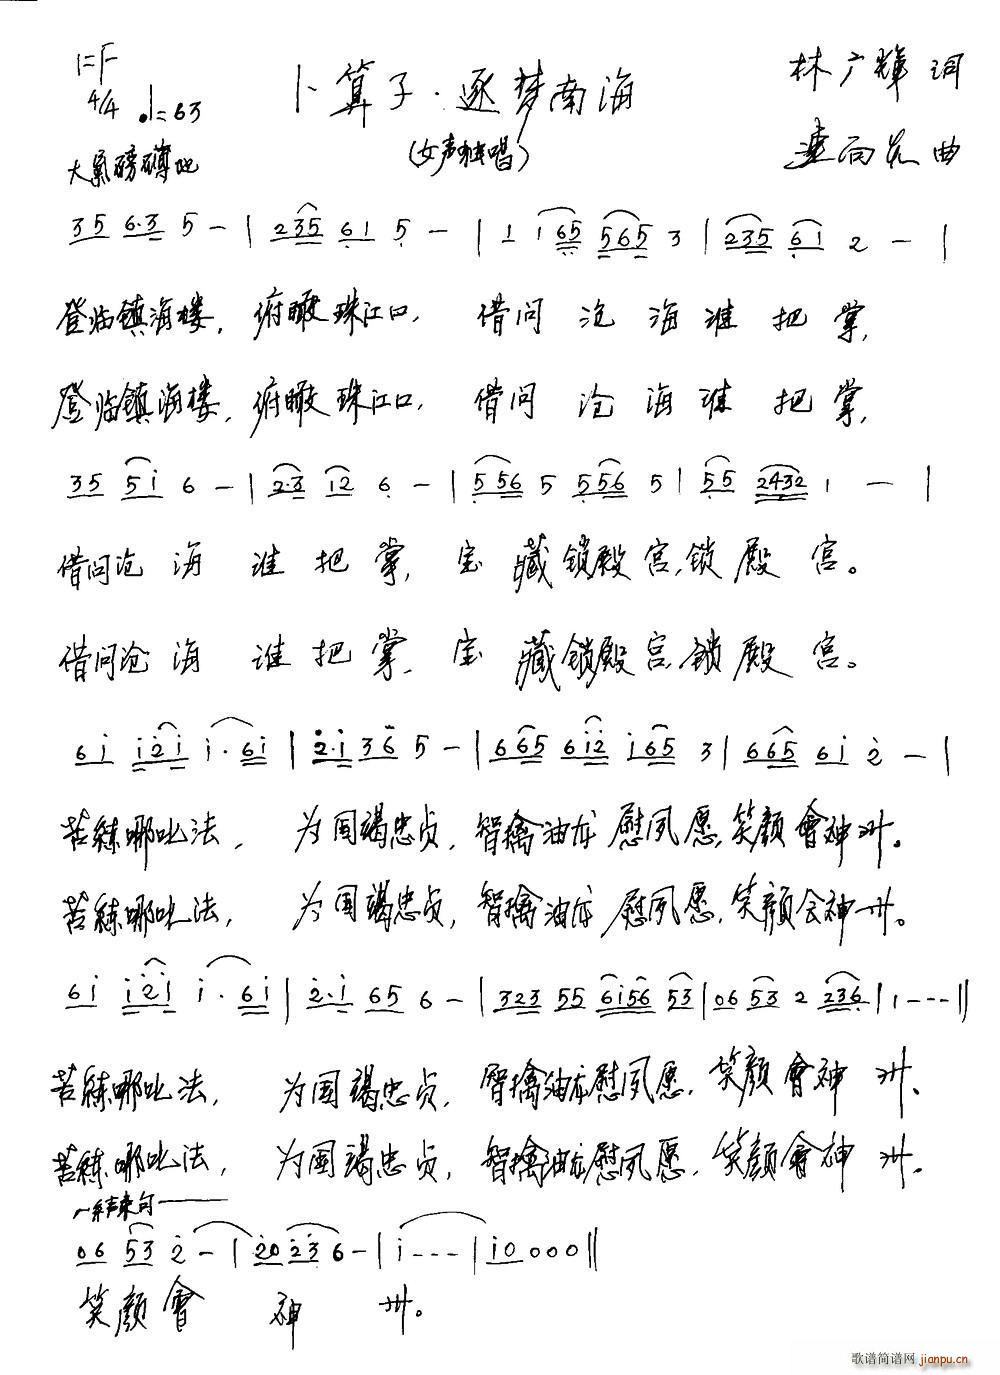 1=F
卜算子·逐梦南海
林广辉 词
4/4 ♩=63
(女声独唱)
曲
大气磅礴地
35 6·3 5 - | 235 61 5 - | 1 i65 565 3 | 235 61 2 - |
登临镇海楼,俯瞰珠江口,借问沧海谁把掌,
登临镇海楼,俯瞰珠江口,借问沧海谁把掌,
35 5i 6 - | 2·3 12 6 - | 556 5 556 5 | 55 2432 1 - |
借问沧海谁把掌,宝藏锁殿宫,锁殿宫。
借问沧海谁把掌,宝藏锁殿宫,锁殿宫。
6i i2i i·6i | 2·i 36 5 - | 665 6i2 i65 3 | 665 6i 2 - |
苦练哪吒法,为国竭忠贞,智擒油龙慰夙愿,笑颜會神州。
苦练哪吒法,为国竭忠贞,智擒油龙慰夙愿,笑颜会神州。
6i i2i i·6i | 2·i 65 6 - | 323 55 6i56 53 | 06 53 2 236 | 1 - - - ||
苦练哪吒法,为国竭忠贞,智擒油龙慰夙愿,笑颜會神州。
苦练哪吒法,为国竭忠贞,智擒油龙慰夙愿,笑颜會神州。
结束句
06 53 2 - | 20 23 6 - | i - - - | i0 0 0 0 ||
笑颜會神州。
歌谱简谱网
jianpu.cn